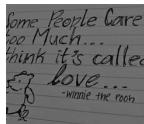 Some People Care
too Much...
think it's called
love...
-winnie the pooh